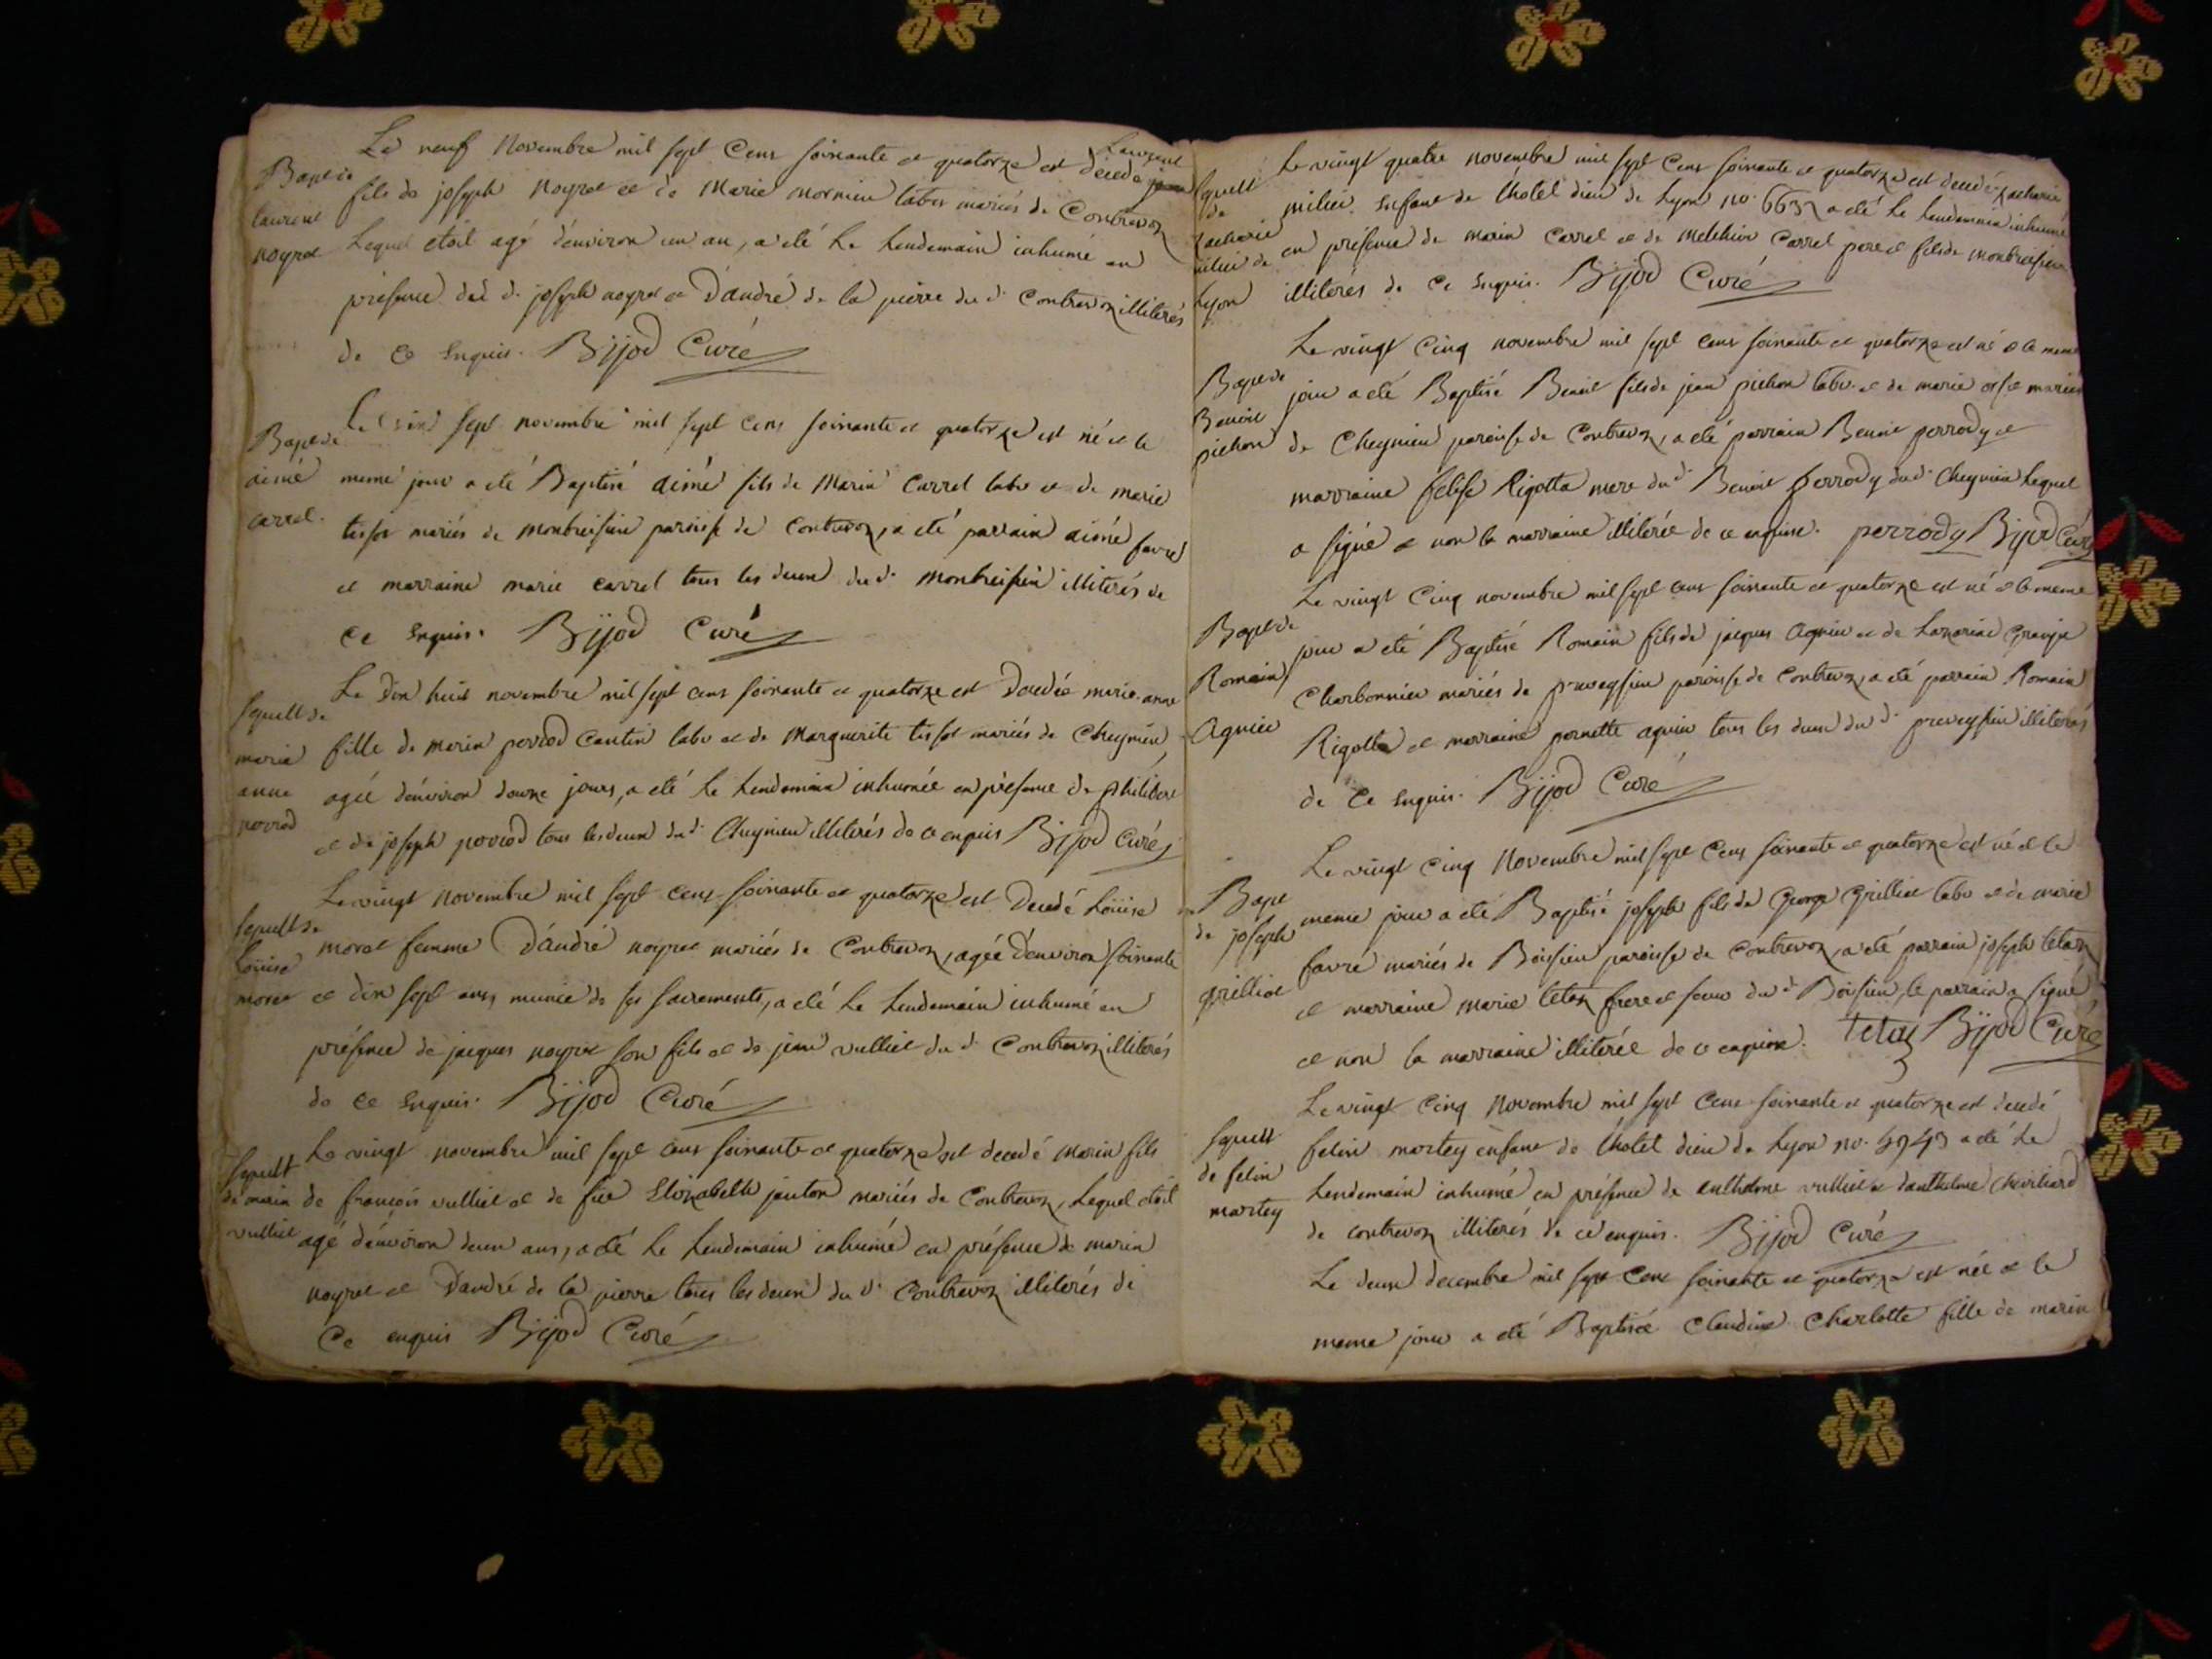 Bapt de
laurent
noyret
Le neuf Novembre mil sept Cens soixante et quatorze est decedé Laurent
fils de joseph noyret et de Marie mornieu labrs mariés de Contrevoz
Lequel etoit agé d'environ un an, a eté Le Lendemain inhumé en
présence dud d. joseph noyret et D'andré de la pierre du d. Contrevoz illiterés
de ce Enquis. Bijod Curé
Bapt de
aimé
carrel.
Le dix sept novembre mil sept Cens soixante et quatorze est né et le
meme jour a eté Baptisé aimé fils de Marin Carrel labr et de marie
tissot mariés de montbreisieu paroisse de Contrevoz, a eté parrain aimé favre
et marraine marie carrel tous les deux du d. montbreisieu illiterés de
ce Enquis. Bijod Curé
sepult de
marie
anne
perrod
Le Dix huit novembre mil sept cens soixante et quatorze est Decedée marie anne
fille de marin perrod Cantin labr et de Marguerite tissot mariés de Cheynieu,
agée d'environ douze jours, a eté Le Lendemain inhumée en présence de philibert
et de joseph perrod tous les deux du d. Cheynieu illiterés de ce enquis Bijod Curé
sepult de
Loüise
moret
Le vingt novembre mil sept cens soixante et quatorze est Decedé Loüise
moret femme D'andré noyret mariés de Contrevoz, agée D'environ soixante
et dix sept ans, munie de ses sacrements, a eté Le Lendemain inhumé en
présence de jacques noyret son fils et de jean vulliet du d. Contrevoz illiterés
de ce Enquis. Bijod Curé
sepult
de marin
vulliet
Le vingt novembre mil sept cens soixante et quatorze est decedé Marin fils
de françois vulliet et de füe Elizabeth janton mariés de Contrevoz, Lequel etoit
agé d'environ deux ans, a eté Le Lendemain inhumé en présence de marin
noyret et D'andré de la pierre tous les deux du d. Contrevoz illiterés de
Ce enquis Bijod Curé
sepult
de
Zacharie
milieu de
Lyon
Le vingt quatre novembre mil sept Cens soixante et quatorze est decedé Zacharie
milieu Enfant de L'hotel dieu de Lyon no. 6632 a eté Le Lendemain inhumé
en présence de marin Carrel et de Melchior Carrel pere et fils de montbreisieu
illiterés de Ce Enquis. Bijod Curé
Bapt de
Benoit
pichon
Le vingt Cinq novembre mil sept cens soixante et quatorze est né et le meme
jour a eté Baptisé Benoit fils de jean pichon labr. et de marie mariés
de Cheynieu paroisse de Contrevoz, a eté parrain Benoit perrody et
marraine Rigotta mere du d. Benoit perrody du d. Cheynieu Lequel
a signé et non la marraine illiterée de ce enquise. perrody Bijod Curé
Bapt de
Romain
Agniez
Le vingt Cinq novembre mil sept cens soixante et quatorze est né et le meme
jour a eté Baptisé Romain fils de jacques Agniez et de Lazarine Grange
Charbonnier mariés de preveyssieu paroisse de Contrevoz, a eté parrain Romain
Rigotta et marraine pernette agniez tous les deux du d. preveyssieu illiterés
de Ce Enquis. Bijod Curé
Bapt
de joseph
grilliet
Le vingt cinq Novembre mil sept Cens soixante et quatorze est né et le
meme jour a eté Baptisé joseph fils de George Grilliet labr et de marie
favre mariés de Boissieu paroisse de Contrevoz, a eté parrain joseph tetaz
et marraine marie tetaz frere et soeur du d. Boissieu, le parrain a signé
et non la marraine illiterée de ce enquise. tetaz Bijod Curé
sepult
de felix
martey
Le vingt Cinq Novembre mil sept Cens soixante et quatorze est decedé
felix martey enfant de L'hotel dieu de Lyon no. 4943 a eté Le
Lendemain inhumé en présence de anthelme vulliet et d'anthelme Chevillard
de contrevoz illiterés de ce enquis. Bijod Curé
Le deux decembre mil sept cens soixante et quatorze est née et le
meme jour a eté Baptisée Claudine Charlotte fille de marin